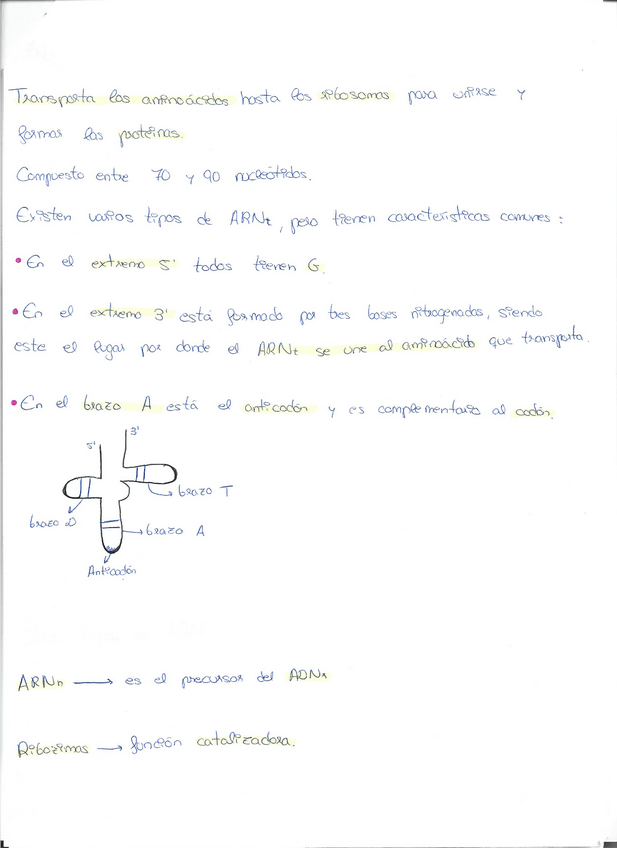 Transporta los aminoácidos hasta los ribosomas para unirse y
formar las proteínas.
Compuesto entre 70 y 90 nucleótidos.
Existen varios tipos de ARNt, pero tienen características comunes:
• En el extremo 5' todos tienen G.
• En el extremo 3' está formado por tres bases nitrogenadas, siendo
este el lugar por donde el ARNt se une al aminoácido que transporta.
• En el brazo A está el anticodón y es complementario al codón.
5' 3'
brazo T
brazo D
brazo A
Anticodón
ARNn → es el precursor del ADNr
Ribozimas → función catalizadora.